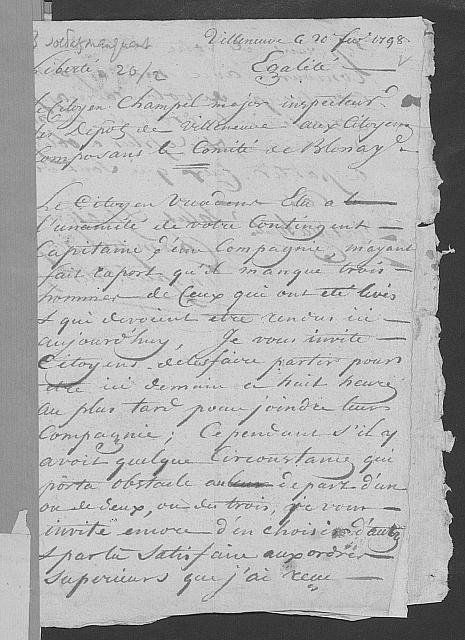 3 soldes manquent
Villeneuve le 20 fev. 1798
Liberté 20/2 Egalité
Le Citoyen Champel major inspecteur
du Dépot de Villeneuve aux Citoyens
Composans le Comité de Blonay
Le Citoyen Elu a
l'unanimité de votre Contingent
Capitaine d'une Compagnie, mayant
fait raport qu'il manque trois
hommes de Ceux qui ont été livés
& qui devoient etre rendus ici
aujourd'huy, Je vous invite
Citoyens de les faire partir pour
etre ici demain a huit heure
au plus tard pour joindre leur
Compagnie; Cependant s'il y
avoit quelque Circonstance qui
porta obstacle au depart d'un
ou de deux, ou des trois, je vous
invite encore d'en choisir d'autre
& par la satisfaire aux ordres
Superieurs que j'ai recu